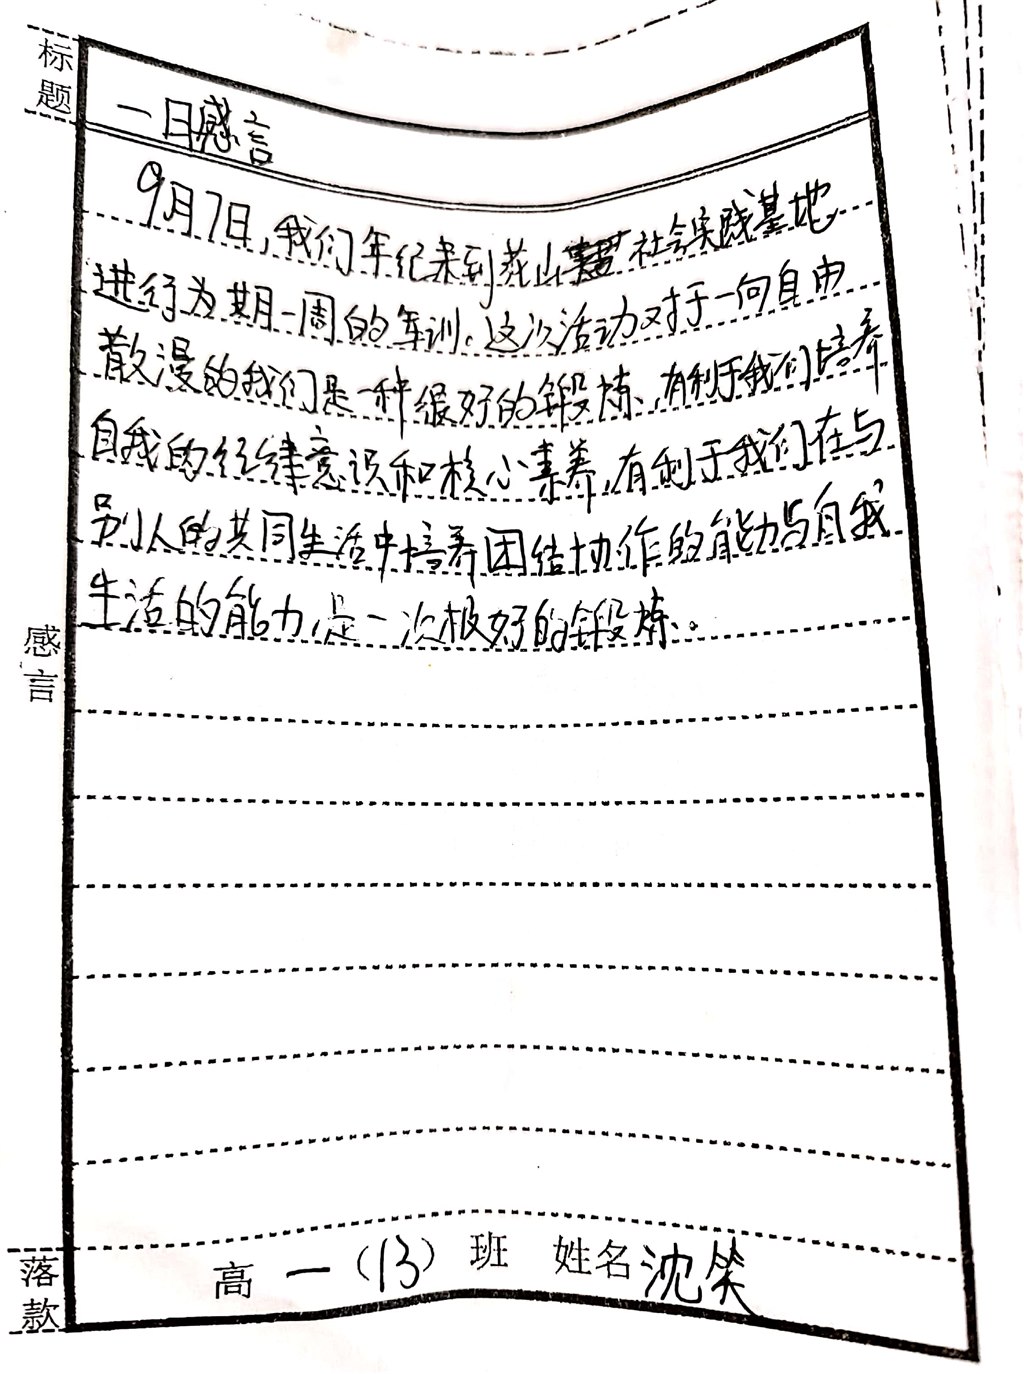 标题
一日感言
9月7日,我们年纪来到茅山社会实践基地
进行为期一周的军训。这次活动对于一向自由
散漫的我们是一种很好的锻炼,有利于我们培养
自我的纪律意识和核心素养,有利于我们在与
别人的共同生活中培养团结协作的能力与自我
生活的能力,是一次极好的锻炼。
感言
落款
高一(13)班 姓名 沈笑